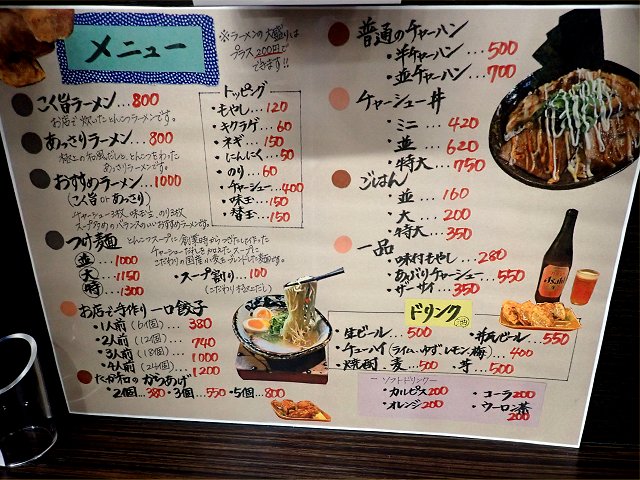 メニュー
※ラーメンの大盛りは
プラス200円で
できます!!
こく旨ラーメン…800
お店で炊いたとんこつラーメンです。
あっさりラーメン…800
おすすめラーメン…1000
(こく旨 or あっさり)
チャーシュー3枚、味玉、のり3枚
つけ麺
並…1000
大…1150
特…1300
・スープ割り…100
お店で手作り一口餃子
1人前(6個)…380
2人前(12個)…740
3人前(18個)…1000
4人前(24個)…1200
たか和のからあげ
・2個…380・3個…550・5個…800
トッピング
・もやし…120
・キクラゲ…60
・ネギ…150
・にんにく…50
・のり…60
・チャーシュー…400
・味玉…150
・替玉…150
普通のチャーハン
・半チャーハン…500
・並チャーハン…700
チャーシュー丼
・ミニ…420
・並…620
・特大…750
ごはん
・並…160
・大…200
・特大…350
一品
・味付もやし…280
・あぶりチャーシュー…550
・ザーサイ…350
ドリンク
・生ビール…500
・瓶ビール…550
・チューハイ(ライム、ゆず、レモン、梅)…400
・焼酎 麦…500
・芋…500
ソフトドリンク
・カルピス200
・コーラ200
・オレンジ200
・ウーロン茶
200
Asahi